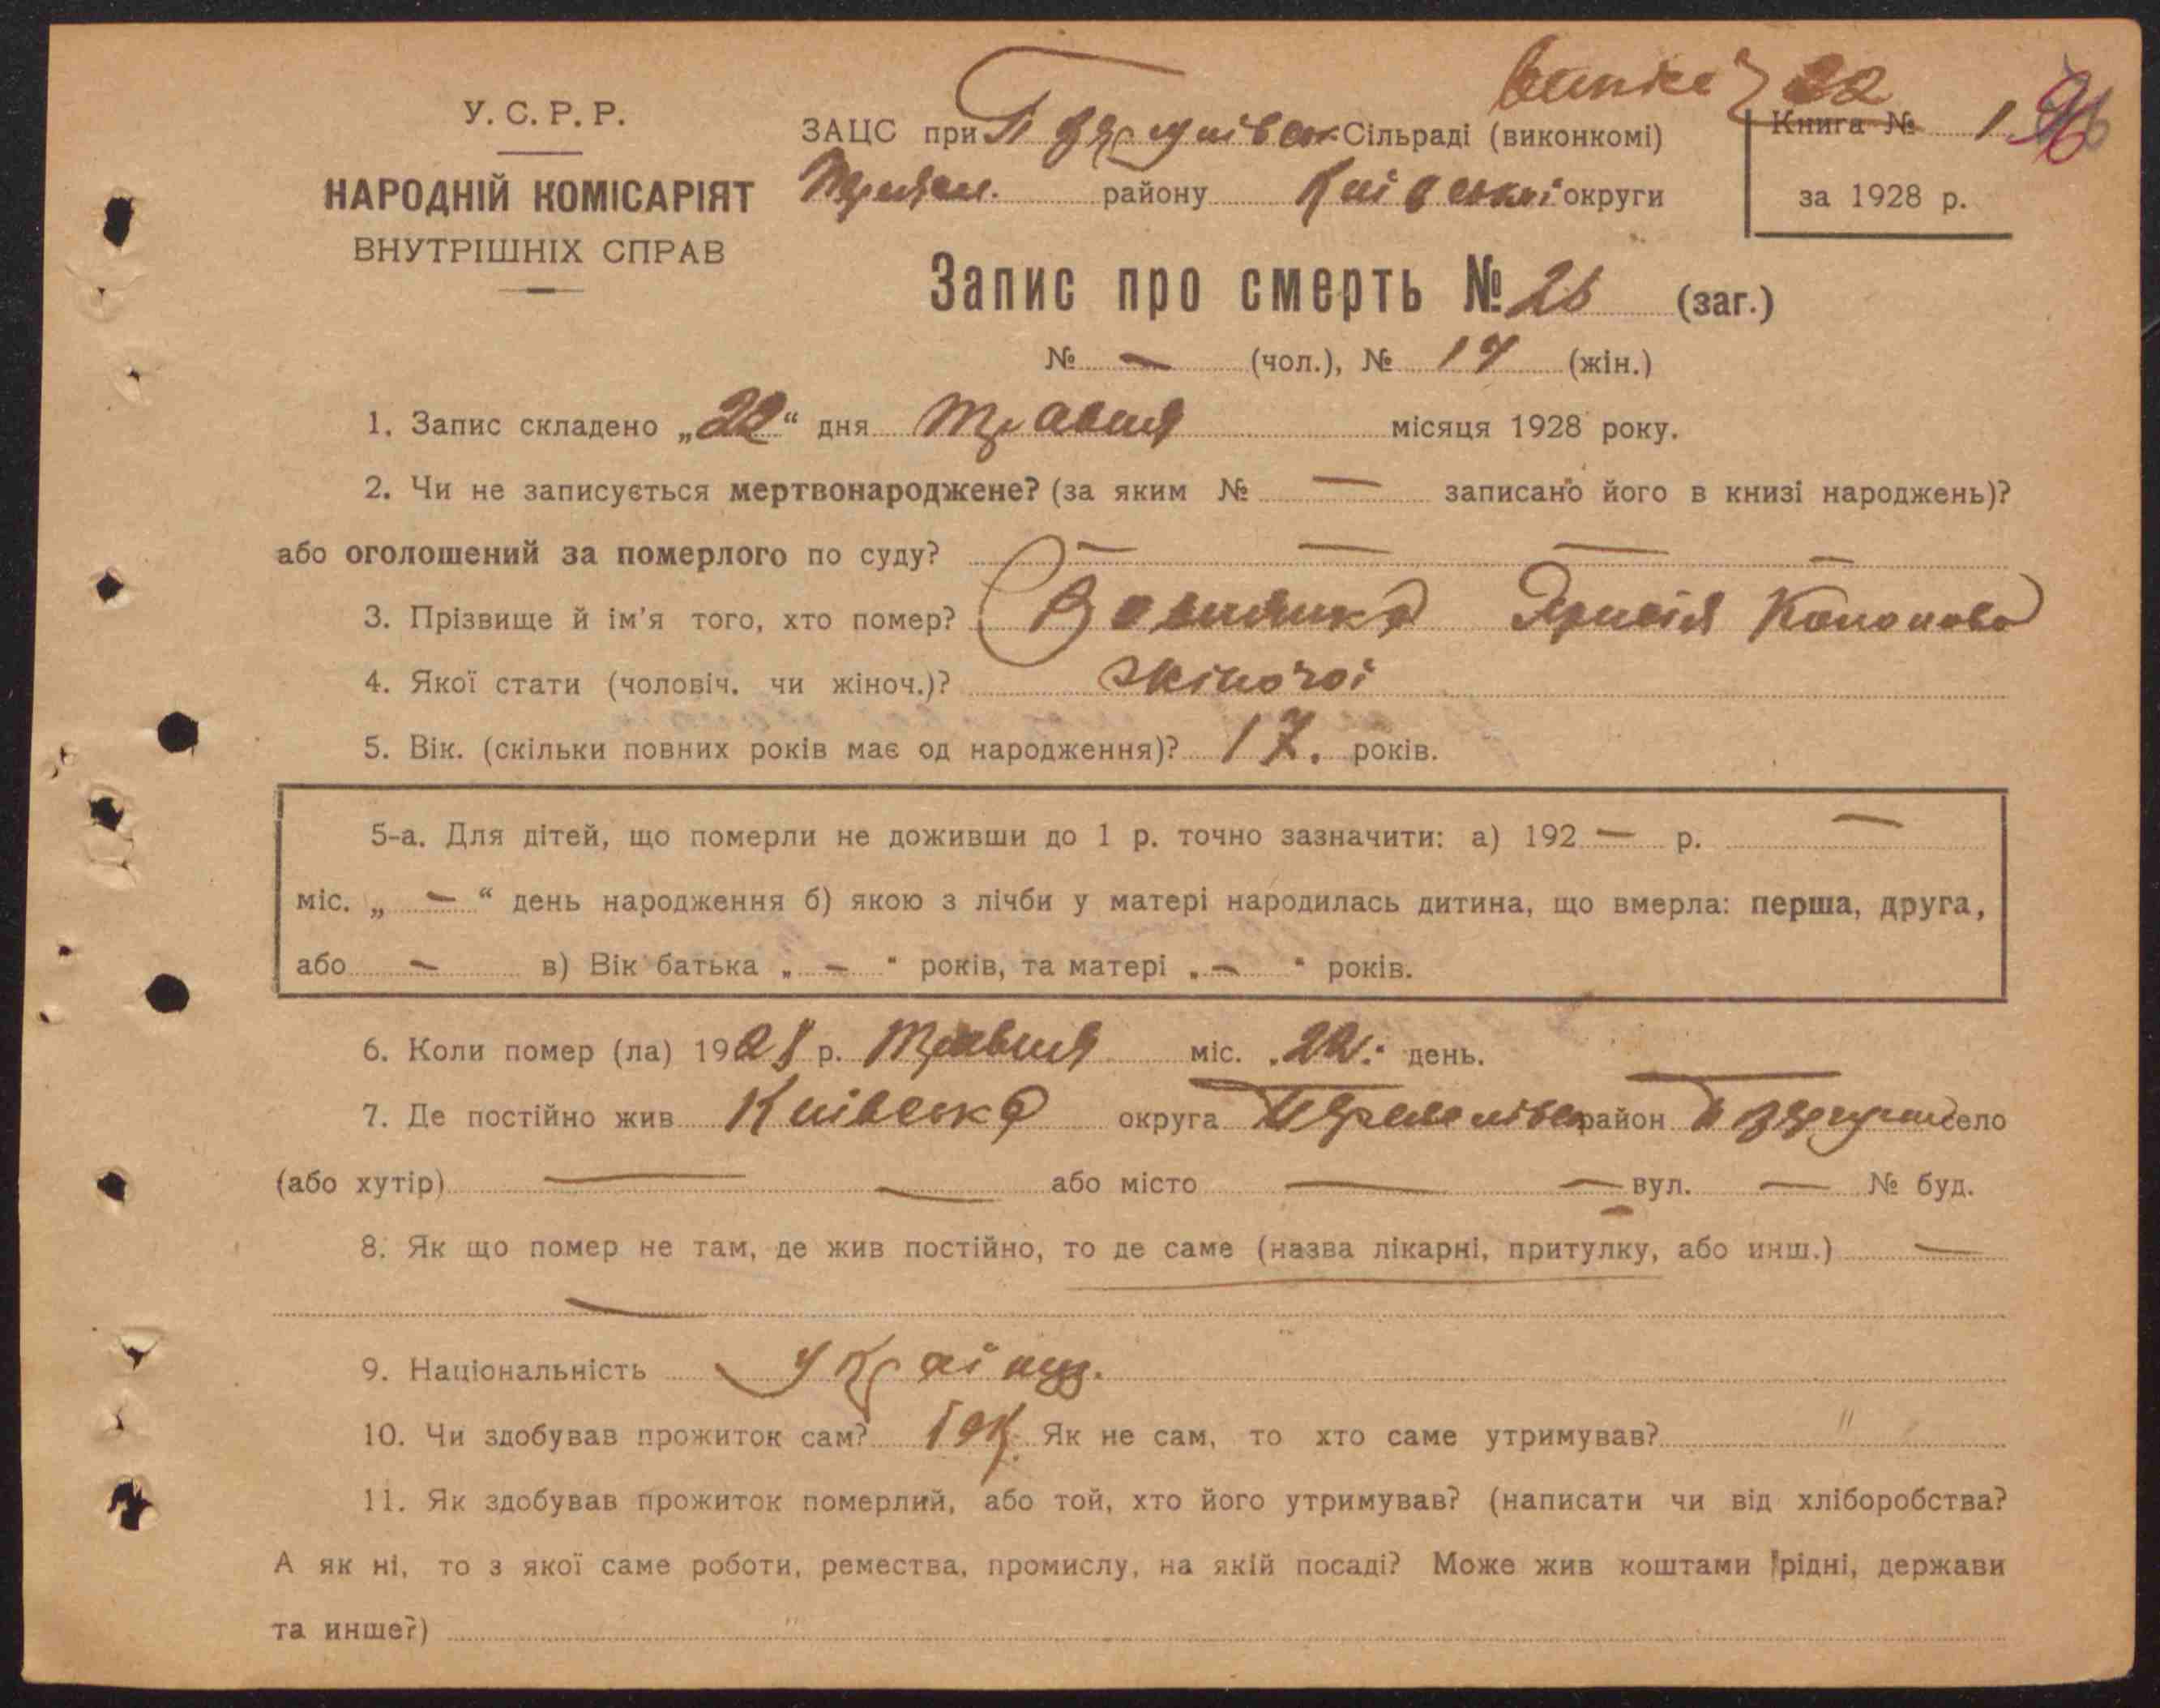 Випис 22
У. С. Р. Р.
НАРОДНІЙ КОМІСАРІЯТ
ВНУТРІШНІХ СПРАВ
ЗАЦС при Сільраді (виконкомі)
району Київської округи
Книга № 1
за 1928 р.
Запис про смерть № 26 (заг.)
№ — (чол.), № 14 (жін.)
1. Запис складено „22“ дня травня місяця 1928 року.
2. Чи не записується мертвонароджене? (за яким № — записано його в книзі народжень)?
або оголошений за померлого по суду? — — — —
3. Прізвище й ім'я того, хто помер?
4. Якої стати (чоловіч. чи жіноч.)? жіночоі
5. Вік. (скільки повних років має од народження)? 17. років.
5-а. Для дітей, що померли не доживши до 1 р. точно зазначити: а) 192 — р. —
міс. „ — “ день народження б) якою з лічби у матері народилась дитина, що вмерла: перша, друга,
або — в) Вік батька „ — “ років, та матері „ — “ років.
6. Коли помер (ла) 1928 р. травня міс. „22“ день.
7. Де постійно жив Київська округа район село
(або хутір) — — або місто — — вул. — № буд.
8. Як що помер не там, де жив постійно, то де саме (назва лікарні, притулку, або инш.) —
—
9. Національність Україн.
10. Чи здобував прожиток сам? Так Як не сам, то хто саме утримував? "
11. Як здобував прожиток померлий, або той, хто його утримував? (написати чи від хліборобства?
А як ні, то з якої саме роботи, ремества, промислу, на якій посаді? Може жив коштами рідні, держави
та инше?) "